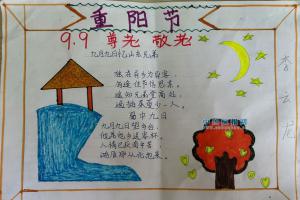 重阳节
9.9 尊老 敬老
九月九日忆山东兄弟
独在异乡为异客
每逢佳节倍思亲
遥知兄弟登高处
遍插茱萸少一人。
蜀中九日
九月九日望乡台
他席他乡送客杯
人情已厌南中苦
鸿雁那从北地来。
李
云